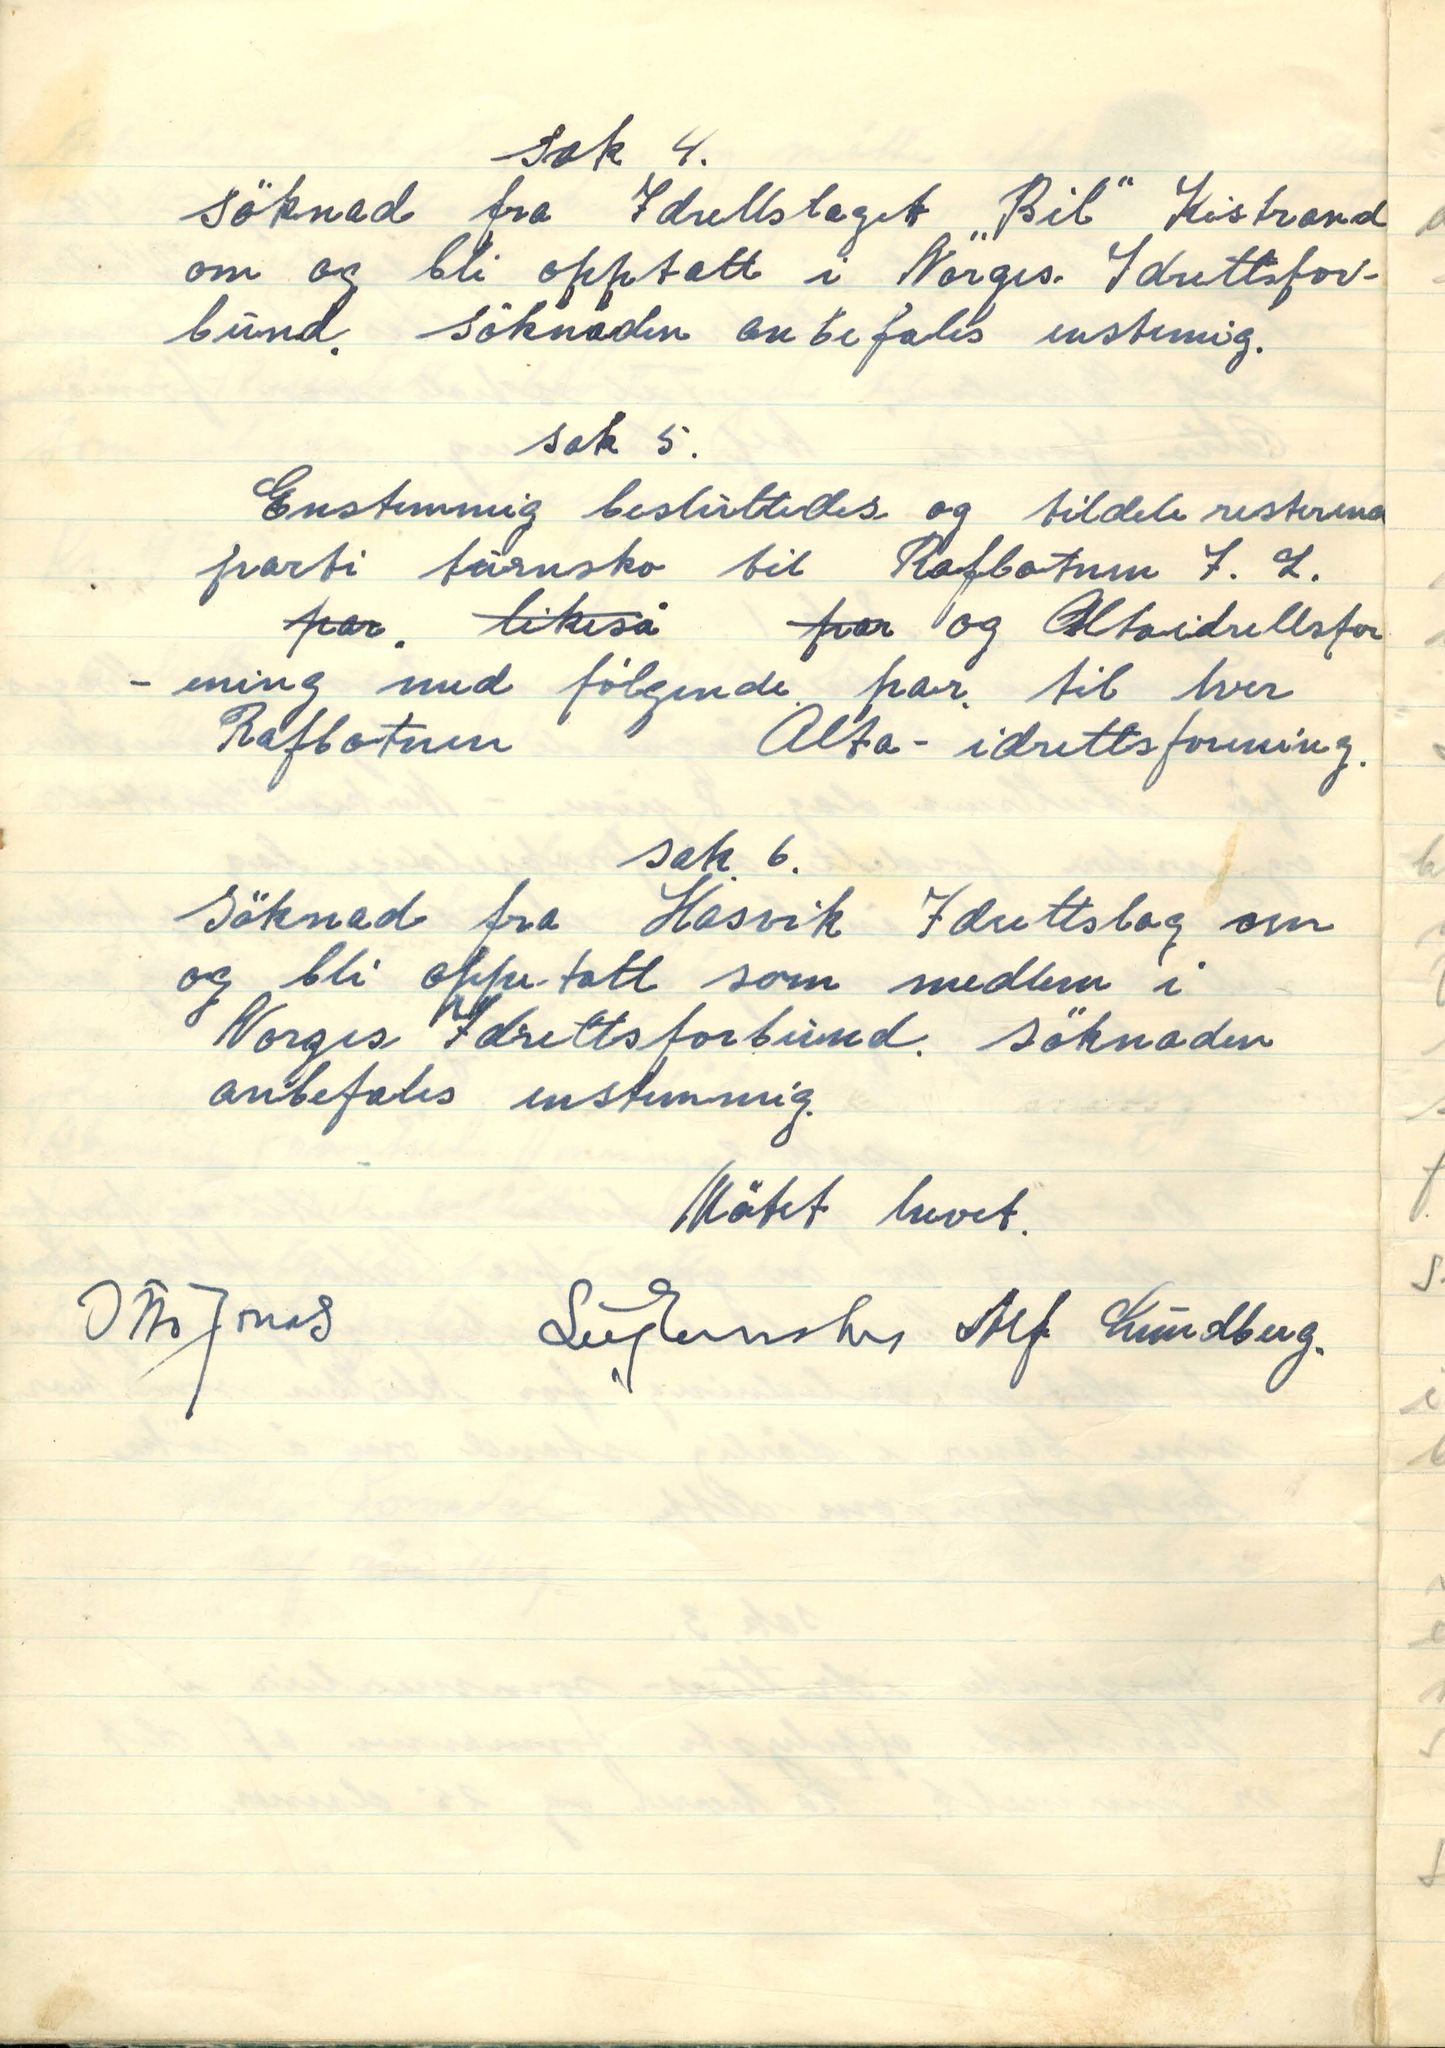 sak 4.
söknad fra Idrettslaget "Bil" Kistrand
om og bli opptatt i Norges. Idrettsfor-
bund. söknaden anbefales enstemig.
sak 5.
Enstemmig besluttedes og tildele resterend
parti turnsko til Rafbotnen I. L.
par. likeså par og Altaidrettsfor
-ening med følgende par. til hver
Rafbotnen Alta- idrettsforening.
sak. 6.
söknad fra Hasvik Idrettslag om
og bli opptatt som medlem i
Norges Idrettsforbund. söknaden
anbefales enstemmig.
Mötet hevet.
Otto Jonas Alf Kundberg.